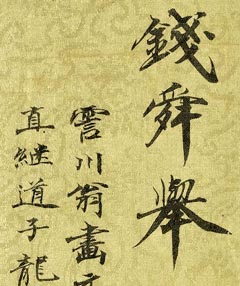 錢舜舉
霅川翁畫
真継道子龍